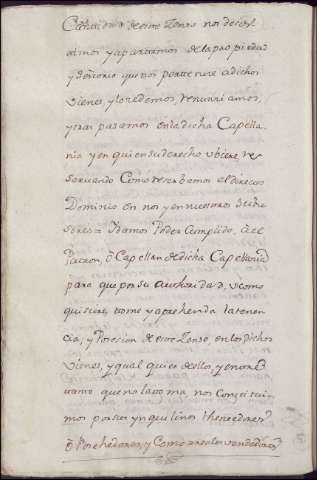 Cantidad de este Zenso nos desis
timos y apartamos de la propiedad
y señorio que nos pertenese a dichos
vienes, y lo cedemos, renunsiamos,
y tras pasamos en la dicha Capella
nia y en quien su derecho ubiere, re
servando Como reserbamos el direcco
Dominio en nos y en nuestros
Idamos Poder Cumplido, a el
Patron, ò Capellan de dicha Capellania
para que por su authoridad, ù como
quisiere, tome y aprehenda la tenen
cia, y Posesion de este Zenso, en los dichos
vienes, y qual quier de ellos, y en el
tanto que no la toma nos Constitui
mos por sus ynquilinos thenedores
ò Posehedores, y Como reales vendedores